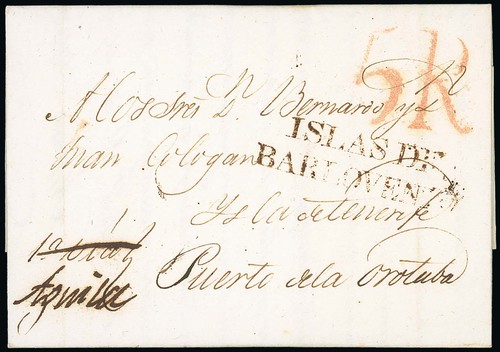 5R
A Los Sres Dn Bernardo y Dn
Juan Cologan
ISLAS DE
BARLOVENTO
Ysla de tenerife
Puerto de la Orotaba